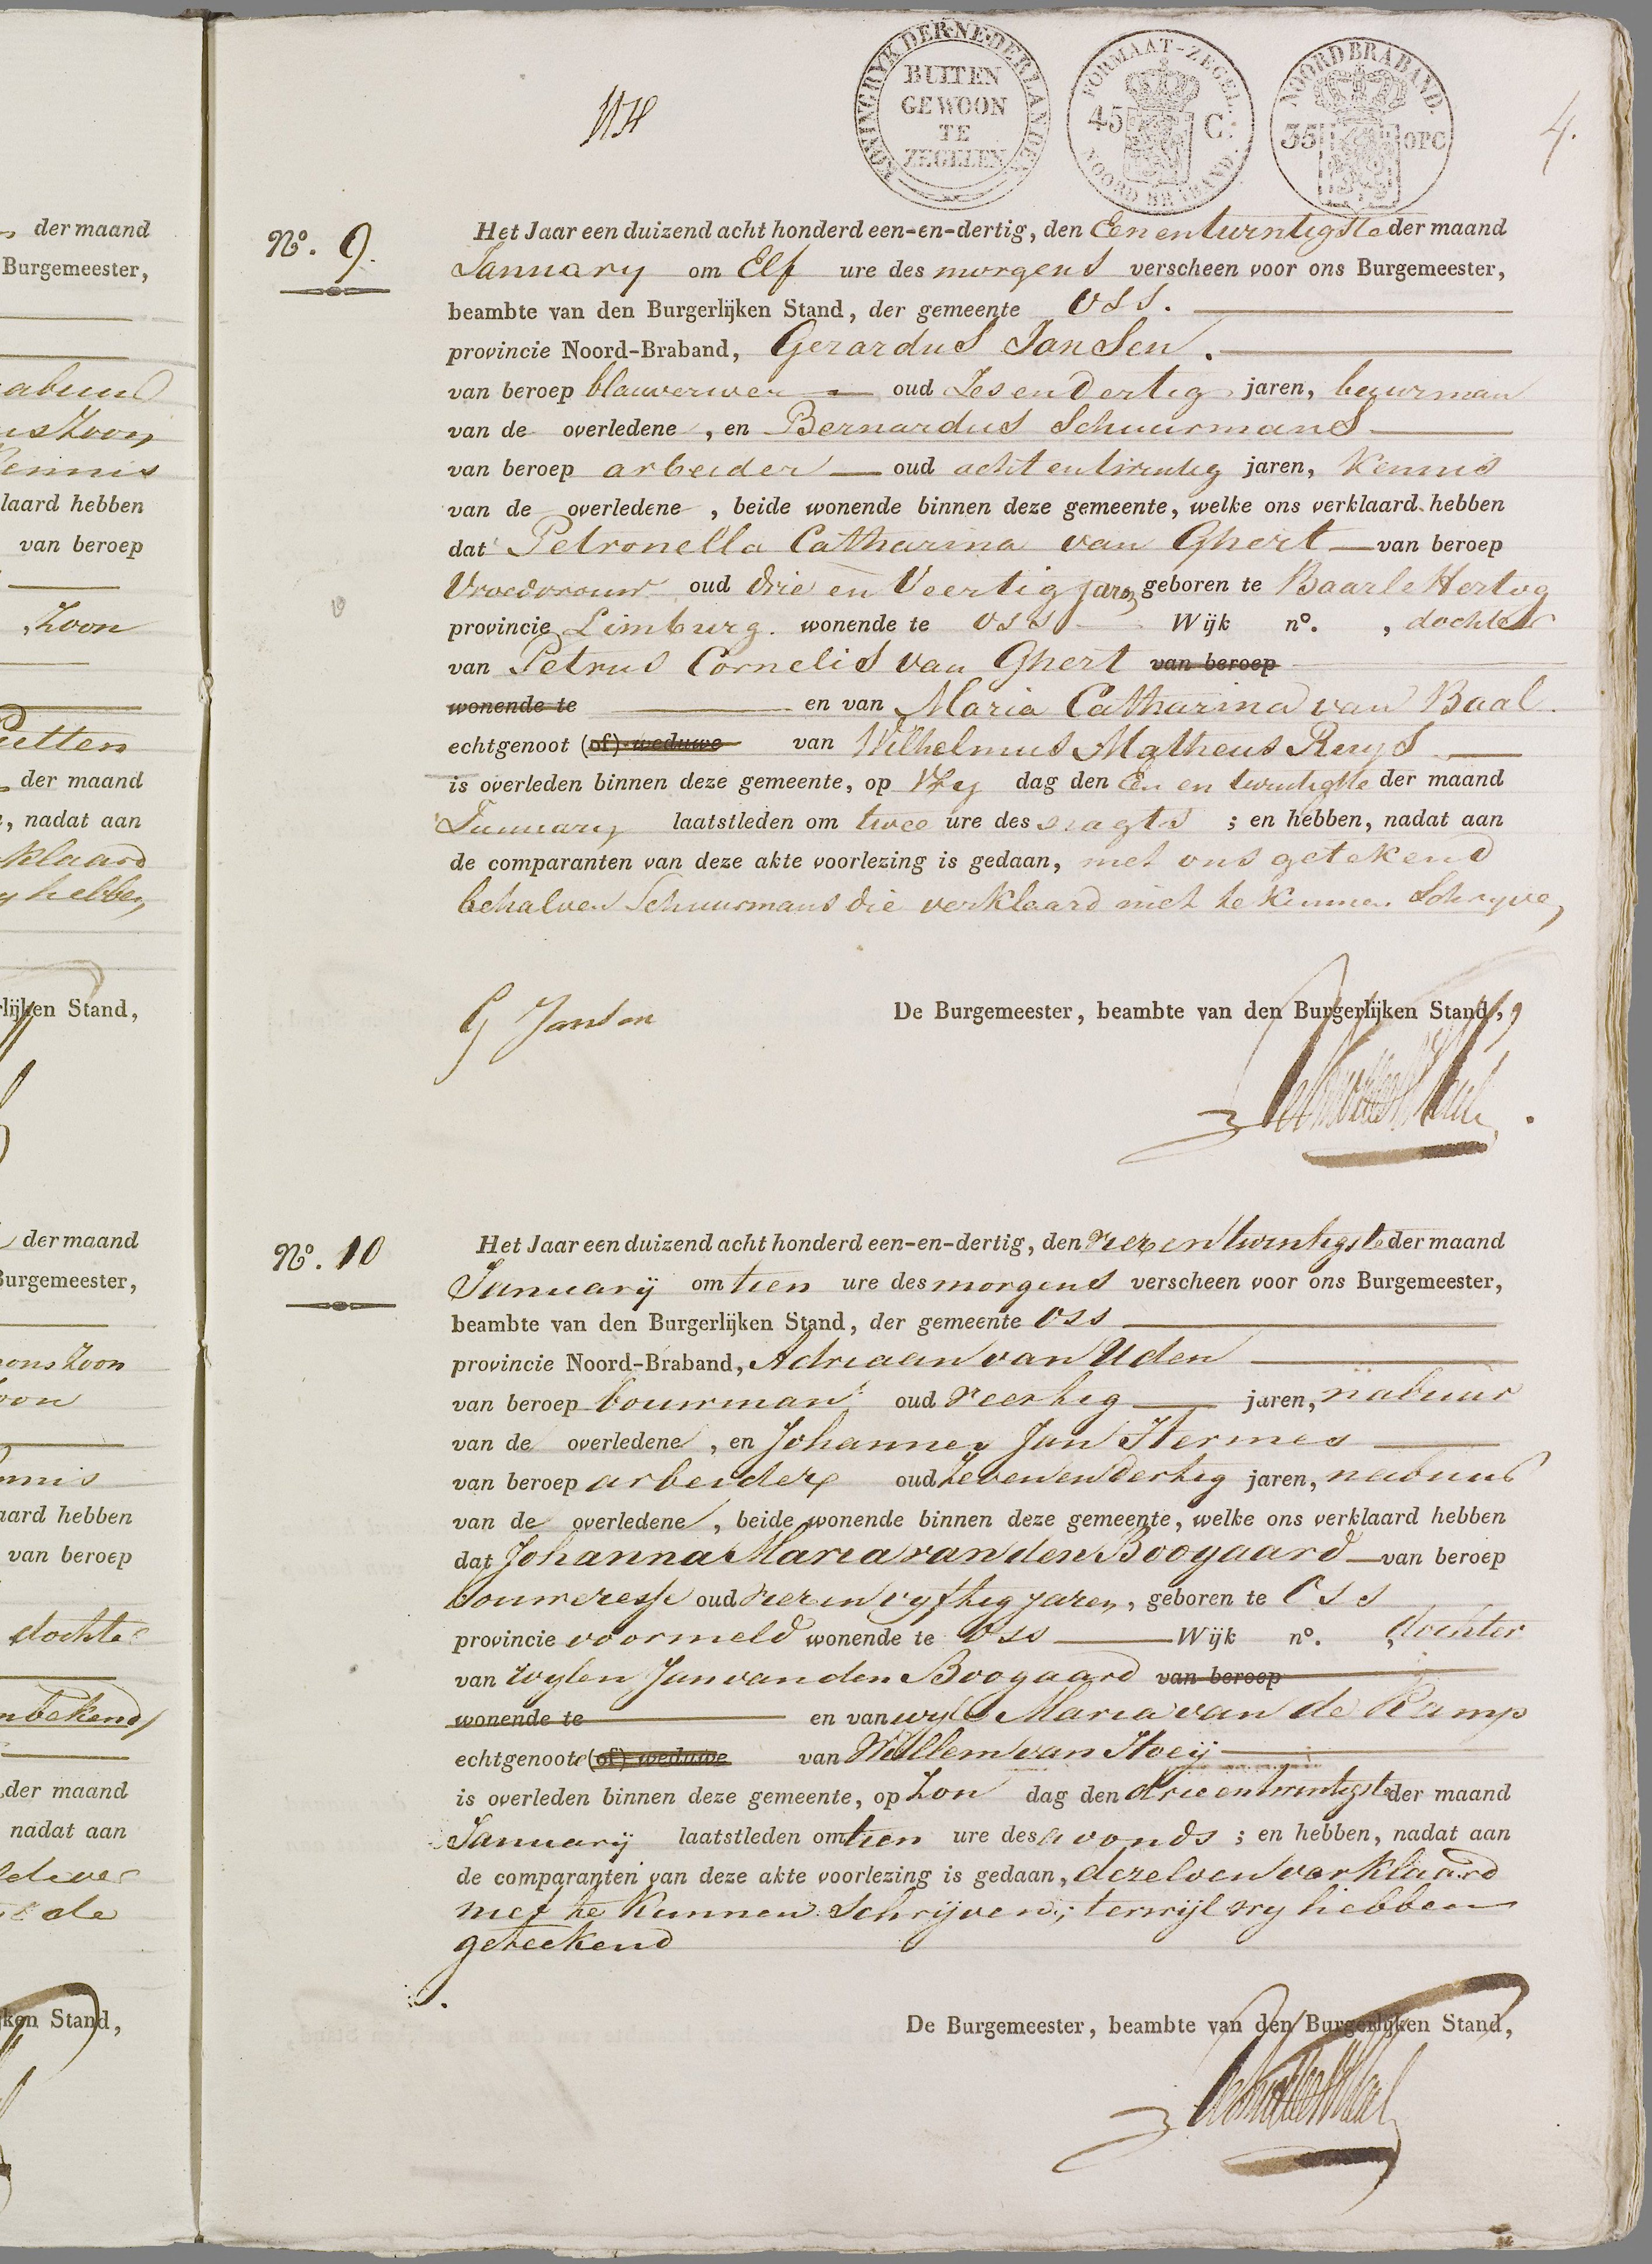 der maand
Burgemeester,
Zoon
laard hebben
van beroep
Zoon
der maand
, nadat aan
klaard
hebben
lijken Stand,
der maand
Burgemeester,
Zoon
aard hebben
van beroep
dochter
nbekend
der maand
nadat aan
de
jken Stand,
KONINGRYK DER NEDERLANDEN
BUITEN
GEWOON
TE
ZEGELEN
FORMAAT-ZEGEL.
45 C.
NOORD BRABAND.
NOORD BRABAND.
35 OPC
4.
No. 9.
Het Jaar een duizend acht honderd een-en-dertig, den Een en twintigste der maand
January om Elf ure des morgens verscheen voor ons Burgemeester,
beambte van den Burgerlijken Stand, der gemeente Oss.
provincie Noord-Braband, Gerardus Jansen.
van beroep blauverwer oud Zes en dertig jaren, buurman
van de overledene, en Bernardus Schuurmans
van beroep arbeider oud acht en twintig jaren, Kennis
van de overledene, beide wonende binnen deze gemeente, welke ons verklaard hebben
dat Petronella Catharina van Ghert van beroep
Vroedvrouw oud drie en Veertig jaren geboren te Baarle Hertog
provincie Limburg. wonende te Oss Wijk no. , dochter
van Petrus Cornelis van Ghert van beroep
wonende te en van Maria Catharina van Baal.
echtgenoot (of) weduwe van Wilhelmus Matheus Reuys
is overleden binnen deze gemeente, op Vry dag den Een en twintigste der maand
January laatstleden om twee ure des nagts ; en hebben, nadat aan
de comparanten van deze akte voorlezing is gedaan, met ons getekend
behalven Schuurmans die verklaard niet te kunnen Schryven
G Jansen
De Burgemeester, beambte van den Burgerlijken Stand,
No. 10
Het Jaar een duizend acht honderd een-en-dertig, den vier en twintigste der maand
Januarij om tien ure des morgens verscheen voor ons Burgemeester,
beambte van den Burgerlijken Stand, der gemeente Oss
provincie Noord-Braband, Adriaan van Uden
van beroep bouwman oud veertig jaren, nabuur
van de overledene, en Johannes Jan Hermes
van beroep arbeider oud Zeven en dertig jaren, nabuur
van de overledene, beide wonende binnen deze gemeente, welke ons verklaard hebben
dat Johanna Maria van den Boogaard van beroep
bouweresse oud vier en vyftig jaren, geboren te Oss
provincie voormeld wonende te Oss Wijk no. , dochter
van wylen Jan van den Boogaard van beroep
wonende te en van wyle Maria van de Kamp
echtgenoote (of) weduwe van Willem van Hoeij
is overleden binnen deze gemeente, op Zon dag den drie en twintigste der maand
Januarij laatstleden om tien ure des avonds ; en hebben, nadat aan
de comparanten van deze akte voorlezing is gedaan, dezelven verklaard
niet te kunnen schrijven; terwijl wy hebben
geteekend
De Burgemeester, beambte van den Burgerlijken Stand,